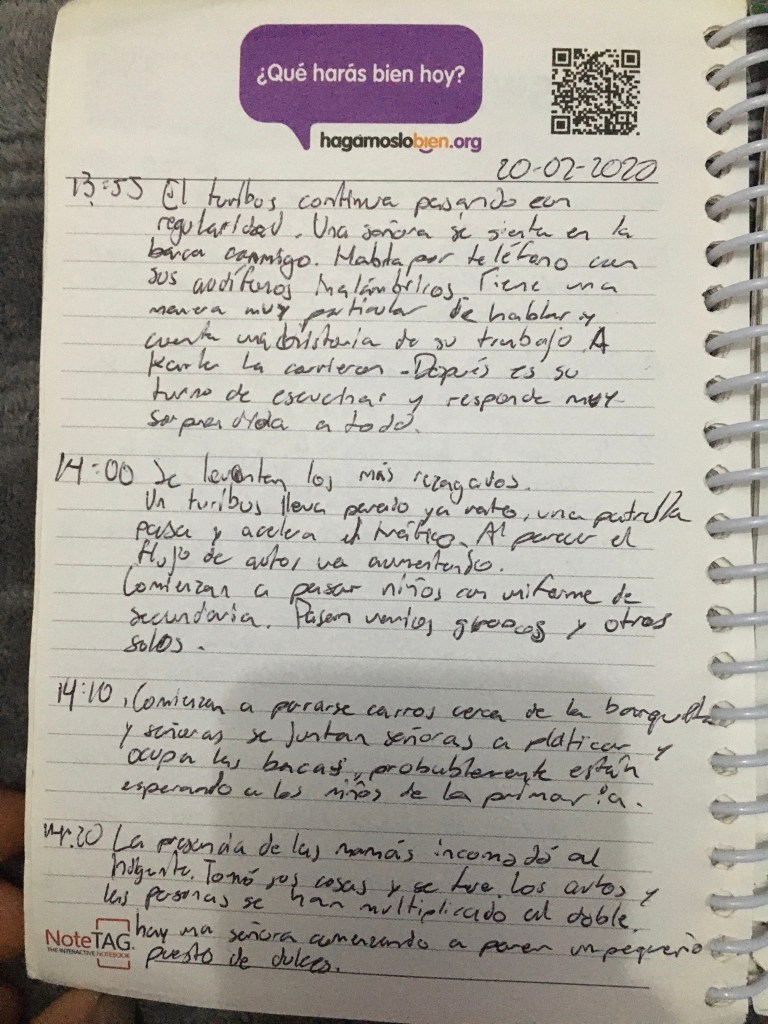 ¿Qué harás bien hoy?
hagámoslobien.org
20-02-2020
13:55 El turibus continua pasando con
regularidad. Una señora se sienta en la
banca conmigo. Habla por teléfono con
sus audífonos inalámbricos. Tiene una
manera muy particular de hablar y
cuenta una historia de su trabajo. A
Karla la corrieron. Después es su
turno de escuchar y responde muy
sorprendida a todo.
14:00 Se levantan los más rezagados.
Un turibus lleva parado ya rato, una patrulla
pasa y acelera el tráfico. Al parecer el
flujo de autos va aumentando.
Comienzan a pasar niños con uniforme de
secundaria. Pasan varios grupos y otros
solos.
14:10, Comienzan a pararse carros cerca de la banqueta
y señoras se juntan señoras a platicar y
ocupa las bacas, probablemente están
esperando a los niños de la primaria.
14:20 La presencia de las mamás incomodó al
indigente. Tomó sus cosas y se fue. Los autos y
las personas se han multiplicado al doble.
hay una señora comenzando a poner un pequeño
puesto de dulces.
NoteTAG.
THE INTERACTIVE NOTEBOOK